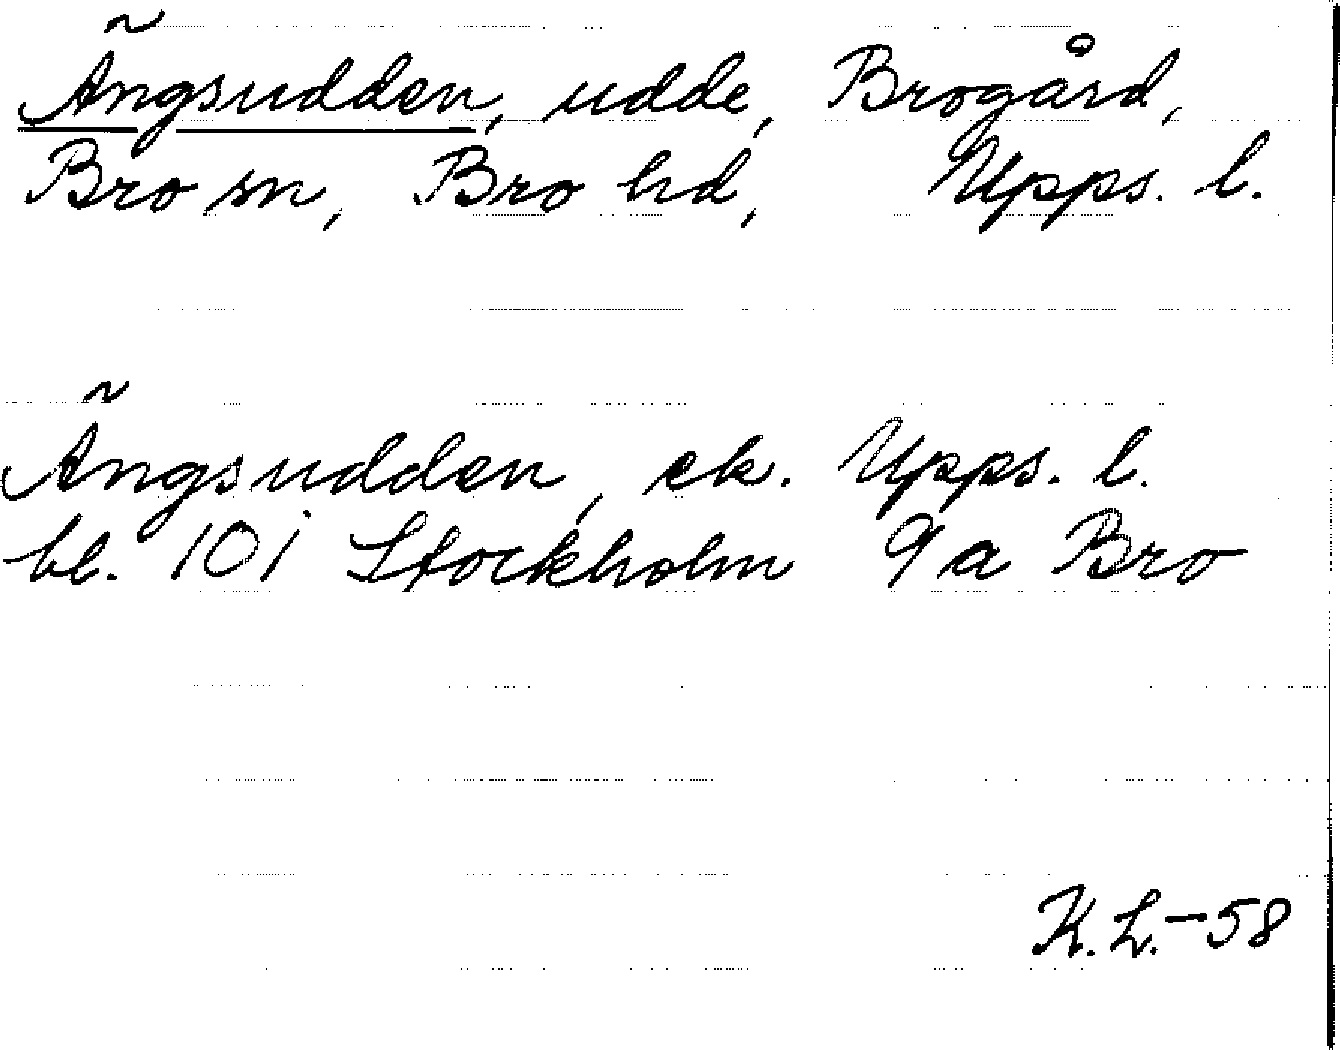 Ängsudden, udde, Brogård,
Bro sn, Bro hd, Upps. l.
Ängsudden, ek. Upps. l.
bl. 101 Stockholm 9a Bro
K. L. - 58